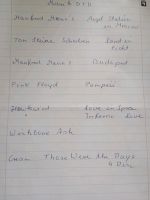 Musik DVD
Manfred Mann's Angel Station
in Moscow
Ton Steine Scherben Land in
Sicht
Manfred Mann's Budapest
Pink Floyd Pompeii
Hawkwind Love in Space
" Treworgey Tree
Wishbone Ash
Cream Those Were the Days